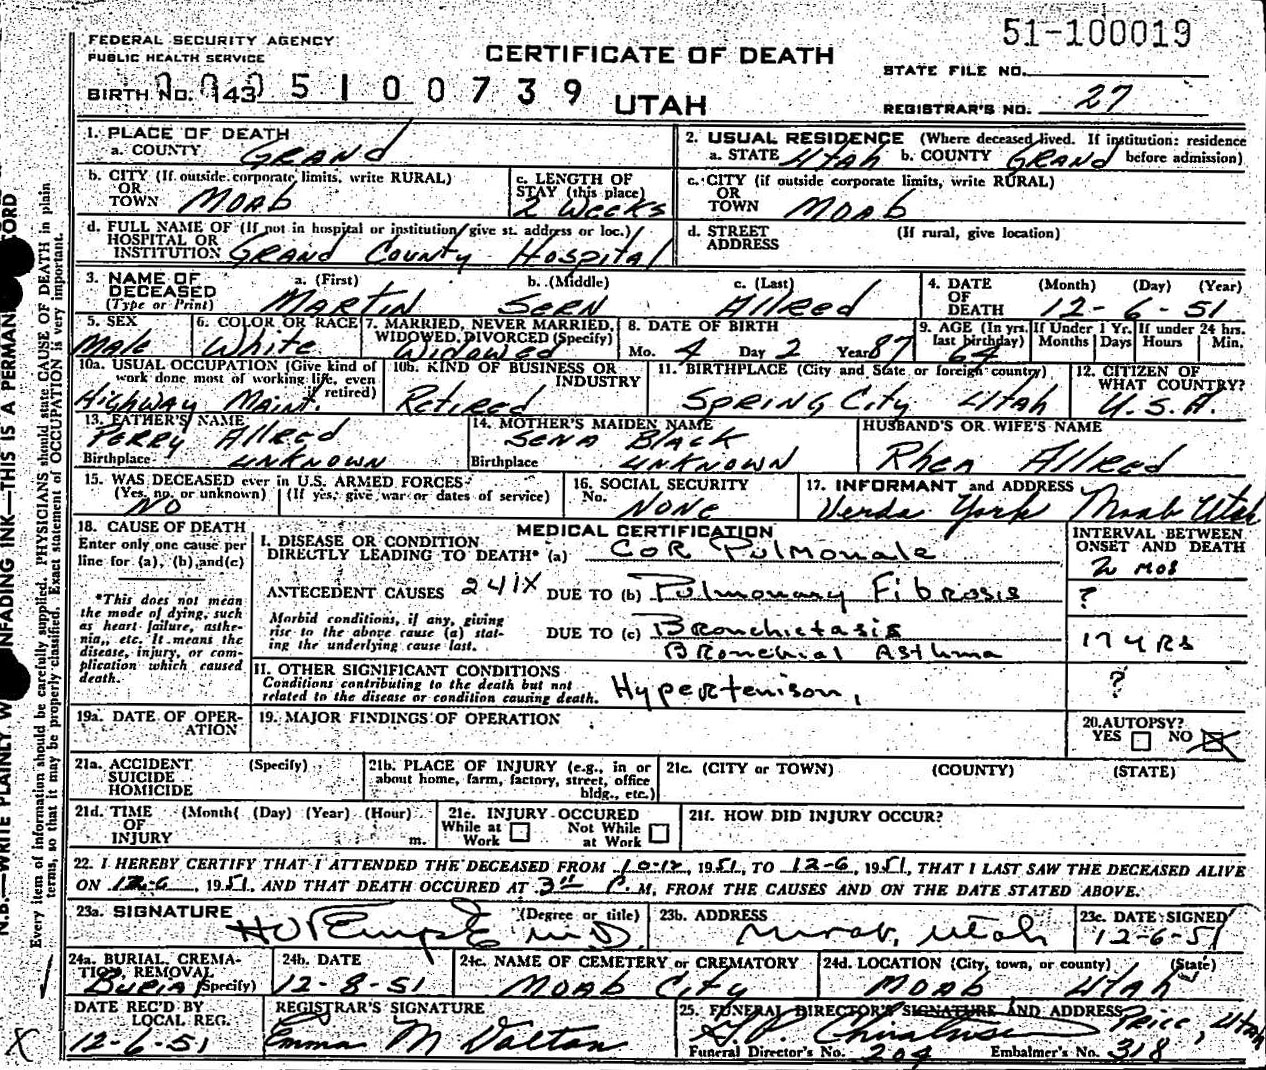 51-100019
FEDERAL SECURITY AGENCY
PUBLIC HEALTH SERVICE
CERTIFICATE OF DEATH
STATE FILE NO.
BIRTH NO. 143 5100739
UTAH
REGISTRAR'S NO. 27
1. PLACE OF DEATH
a. COUNTY GRAND
2. USUAL RESIDENCE (Where deceased lived. If institution: residence before admission)
a. STATE Utah b. COUNTY GRAND
b. CITY (If outside corporate limits, write RURAL) OR TOWN MOAB
c. LENGTH OF STAY (this place) 2 WEEKS
c. CITY (if outside corporate limits, write RURAL) OR TOWN MOAB
d. FULL NAME OF (If not in hospital or institution give st. address or loc.) HOSPITAL OR INSTITUTION GRAND County Hospital
d. STREET ADDRESS (If rural, give location)
3. NAME OF DECEASED (Type or Print)
a. (First) MARTIN b. (Middle) SERN c. (Last) Allred
4. DATE OF DEATH (Month) (Day) (Year) 12-6-51
5. SEX Male
6. COLOR OR RACE White
7. MARRIED, NEVER MARRIED, WIDOWED, DIVORCED (Specify) Widowed
8. DATE OF BIRTH Mo. 4 Day 2 Year 87
9. AGE (In yrs. last birthday) 64
If Under 1 Yr. Months Days
If under 24 hrs. Hours Min.
10a. USUAL OCCUPATION (Give kind of work done most of working life, even retired) Highway Maint.
10b. KIND OF BUSINESS OR INDUSTRY Retired
11. BIRTHPLACE (City and State or foreign country) SPRING City Utah
12. CITIZEN OF WHAT COUNTRY? U.S.A.
13. FATHER'S NAME Perry Allred
Birthplace UNKNOWN
14. MOTHER'S MAIDEN NAME SENA BLACK
Birthplace UNKNOWN
HUSBAND'S OR WIFE'S NAME
Rhea Allred
15. WAS DECEASED ever in U.S. ARMED FORCES
(Yes, no, or unknown) (If yes, give war or dates of service)
NO
16. SOCIAL SECURITY No. NONE
17. INFORMANT and ADDRESS
Verda York Moab Utah
18. CAUSE OF DEATH
Enter only one cause per line for (a), (b), and (c)
*This does not mean the mode of dying, such as heart failure, asthenia, etc. It means the disease, injury, or complication which caused death.
MEDICAL CERTIFICATION
INTERVAL BETWEEN ONSET AND DEATH
I. DISEASE OR CONDITION DIRECTLY LEADING TO DEATH* (a) COR Pulmonale
2 mos
ANTECEDENT CAUSES 241X DUE TO (b) Pulmonary Fibrosis
?
Morbid conditions, if any, giving rise to the above cause (a) stating the underlying cause last.
DUE TO (c) Bronchietasis
Bronchial Asthma
17 YRS
II. OTHER SIGNIFICANT CONDITIONS
Conditions contributing to the death but not related to the disease or condition causing death.
Hypertenison,
?
19a. DATE OF OPERATION
19. MAJOR FINDINGS OF OPERATION
20. AUTOPSY?
YES NO
21a. ACCIDENT SUICIDE HOMICIDE (Specify)
21b. PLACE OF INJURY (e.g., in or about home, farm, factory, street, office bldg., etc.)
21c. (CITY or TOWN) (COUNTY) (STATE)
21d. TIME OF INJURY (Month) (Day) (Year) (Hour) m.
21e. INJURY OCCURED
While at Work Not While at Work
21f. HOW DID INJURY OCCUR?
22. I HEREBY CERTIFY THAT I ATTENDED THE DECEASED FROM 10-12, 1951, TO 12-6, 1951, THAT I LAST SAW THE DECEASED ALIVE
ON 12-6, 1951, AND THAT DEATH OCCURED AT 3 P. M, FROM THE CAUSES AND ON THE DATE STATED ABOVE.
23a. SIGNATURE (Degree or title) M D
23b. ADDRESS Moab, Utah
23c. DATE SIGNED 12-6-51
24a. BURIAL, CREMATION, REMOVAL (Specify) Burial
24b. DATE 12-8-51
24c. NAME OF CEMETERY or CREMATORY MOAB City
24d. LOCATION (City, town, or county) (State) MOAB Utah
DATE REC'D BY LOCAL REG. 12-6-51
REGISTRAR'S SIGNATURE Emma M Dalton
25. FUNERAL DIRECTOR'S SIGNATURE AND ADDRESS Price, Utah
Funeral Director's No. 204 Embalmer's No. 318
Every item of information should be carefully supplied. PHYSICIANS should state CAUSE OF DEATH in plain
terms, so that it may be properly classified. Exact statement of OCCUPATION is very important.